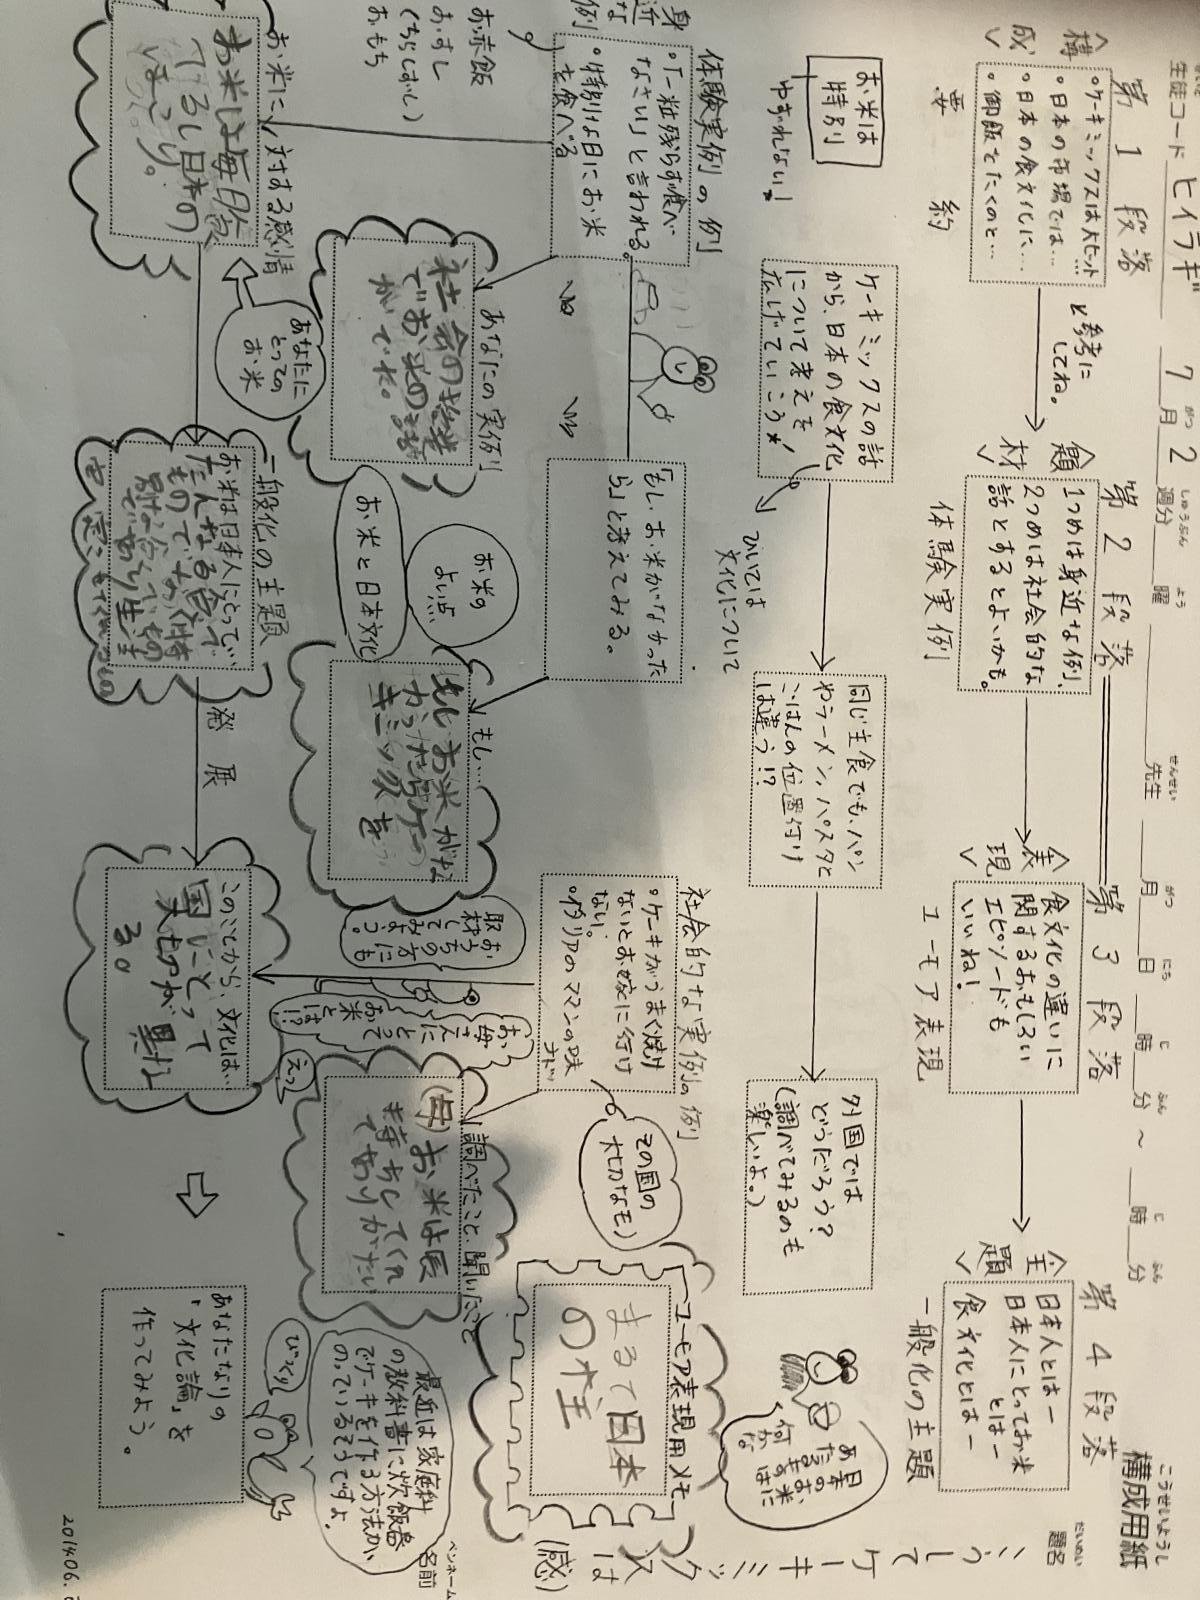 構成用紙
こうせいようし
題名
だいめい
こうしてケーキミックスは(感)
ペンネーム
名前
生徒コード ヒイラギ 7月2週分 曜 先生 月 日 時 分 ~ 時 分
がつ しゅうぶん よう せんせい がつ にち じ ふん じ ふん
第1段落
<構成>
・ケーキミックスは大ヒット…
・日本の市場では…
・日本の食文化に…
・御飯をたくのと…
要約
と参考にしてね。
第2段落
<題材>
1つめは身近な例、
2つめは社会的な
話とするとよいかも。
体験実例
第3段落
<表現>
食文化の違いに
関するおもしろい
エピソードも
いいね!
ユーモア表現
第4段落
<主題>
日本人とはー
日本人にとってお米
とはー
食文化とはー
一般化の主題
お米は
特別
ゆずれない!
ケーキミックスの話
から、日本の食文化
について考えを
広げていこう
ひいては
文化について
同じ主食でも、パン
やラーメン、パスタと
ごはんの位置付け
は違う!?
外国では
どうだろう?
(調べてみるのも
楽しいよ。)
体験実例の例
身近な例
・「一粒残らず食べ
なさい」と言われる。
・特別な日にお米
を食べる
お赤飯
おすし
(ちらしずし)
おもち
「もし、お米がなかった
ら」と考えてみる。
社会的な実例の例
・ケーキがうまく焼け
ないとお嫁に行け
ない。
・イタリアのママンの味
ナド…
その国の
大切なモノ
ユーモア表現用メモ
まるで日本
の主
あなたの実例
社会の授業
でお米の話
がでた。
お米の
よい点
お米と日本文化
もし…
もしお米がな
かったらケー
キミックスを
おうちの方にも
取材してみよっ。
お母さんにとって
お米とは!?
えっ
調べたこと、聞いたこと
(母)お米は長
持ちしてくれ
てありがたい
最近は家庭科
の教科書に炊飯器
でケーキを作る方法が
のっているそうですよ。
びっくり
お米に対する感情
お米は毎日食
べてるし日本の
ほこり。
あなたに
とっての
お米
一般化の主題
お米は日本人にとって…
発展
このことから、文化は…
国にとって
大切さが異な
る。
あなたなりの
「文化論」を
作ってみよう。